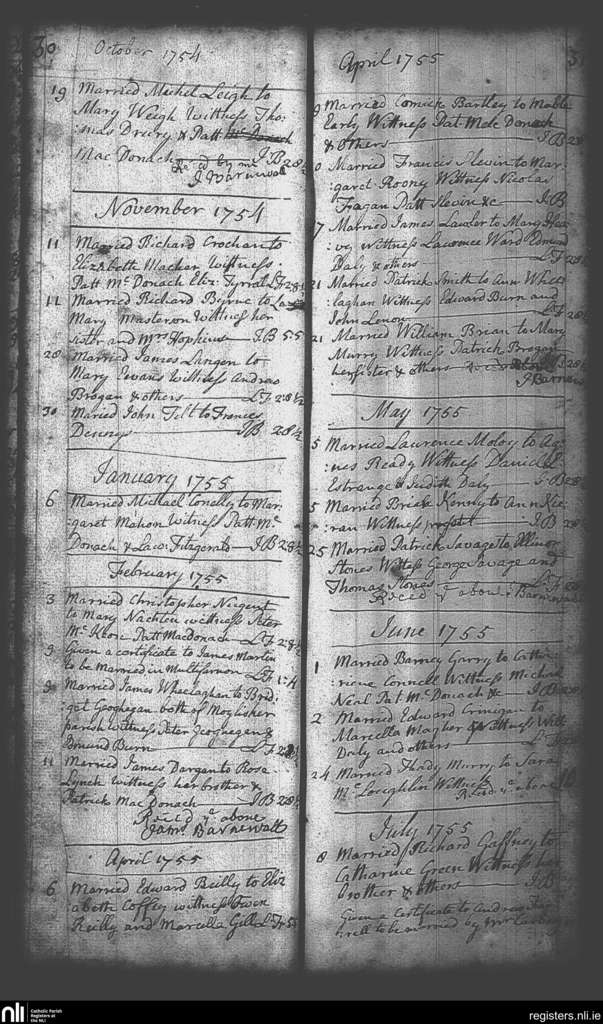 30
October 1754
19 Married Michel Leigh to
Mary Weigh Wittness Tho:
mas Drury & Patt
Mac Donach J B 2 8½
Rced by me
J Barnewall
November 1754
11 Married Richard Crochan to
Elizabeth Mackan Wittness
Patt Mc Donach Eliz: Tyrrel L F 2 8½
11 Married Richard Byrne to
Mary Masterson Wittness her
sister and Mrs Hopkins J B 5 5
20 Married James Langan to
Mary Evans Wittness Andrew
Brogan & others L F 2 8½
30 Maried John Tilt to Frances
J B 2 8½
January 1755
6 Married Michael Conelly to Mar:
:garet Mahon Witness Patt Mc
Donach & Lacu: Fitzgerald J B 2 8½
February 1755
3 Married Christopher Nugent
to Mary Naghten wittness Peter
Mc Keon Patt Macdonach L F 2 8½
9 Given a certificate to James Martin
to be Married in Multifarnon L F 1 4
9 Married James Whaelaghan to Brid:
:get Geoghegan both of Moylisher
parish witness Peter Geoghegan &
Bmund Burn L F 2 8½
11 Married James Dargan to Rose
Lynch wittness her brother &
Patrick Mac Donach J B 2 8½
Rcied ye above
James Barnewall
April 1755
6 Married Edward Reilly to Eliz
abeth Coffey wittness Owen
Reilly and Marcella Gill L F 5 5
April 1755
9 Married Cormick Bartley to Mable
Early Wittness Pat Mck Donach
& others J B 2 8
Married Francis Slevin to Mar:
garet Rooney Wittness Nicolas
Fagan Patt Slevin &c J B
7 Married James Lawler to Mary
wittness Lawrence Ward Edmund
Daly & others L F 2 8
21 Married Patrick Smith to Ann Whee
laghan Wittness Edward Burn and
John Lenon L F 2 8
21 Married William Brian to Mary
Murry Wittness Patrick Brogan
her sister & others 2 8½
J Barnewall
May 1755
5 Married Laurence Moloy to Ag:
:nes Ready Wittness Daniel
Estrange & Judith Daly J B 2 8
5 Married Brian Kenny to Ann Kie:
ran Wittness J B 2 8
25 Married Patrick Savage to Ellinor
Stones Wittess George Savage and
Thomas Stones L F 2 8
Rcied ye above J Barnewall
June 1755
1 Married Barney Garry to Cathe
:rine Connell Wittness Michael
Neal Pat Mc Donach &c J B 2 8
2 Married Edward Cormigan to
Marcella Magher Wittness Will
Daly and others L F
24 Married Thady Murry to Sara
Mc Loughlin Wittness
Rcied ye above J B
July 1755
8 Married Richard Gaffney to
Catharine Green Wittness her
brother & others J B
Given a Certificate to Andrew
to be married by Mr
nli
Catholic Parish
Registers at
the NLI
registers.nli.ie